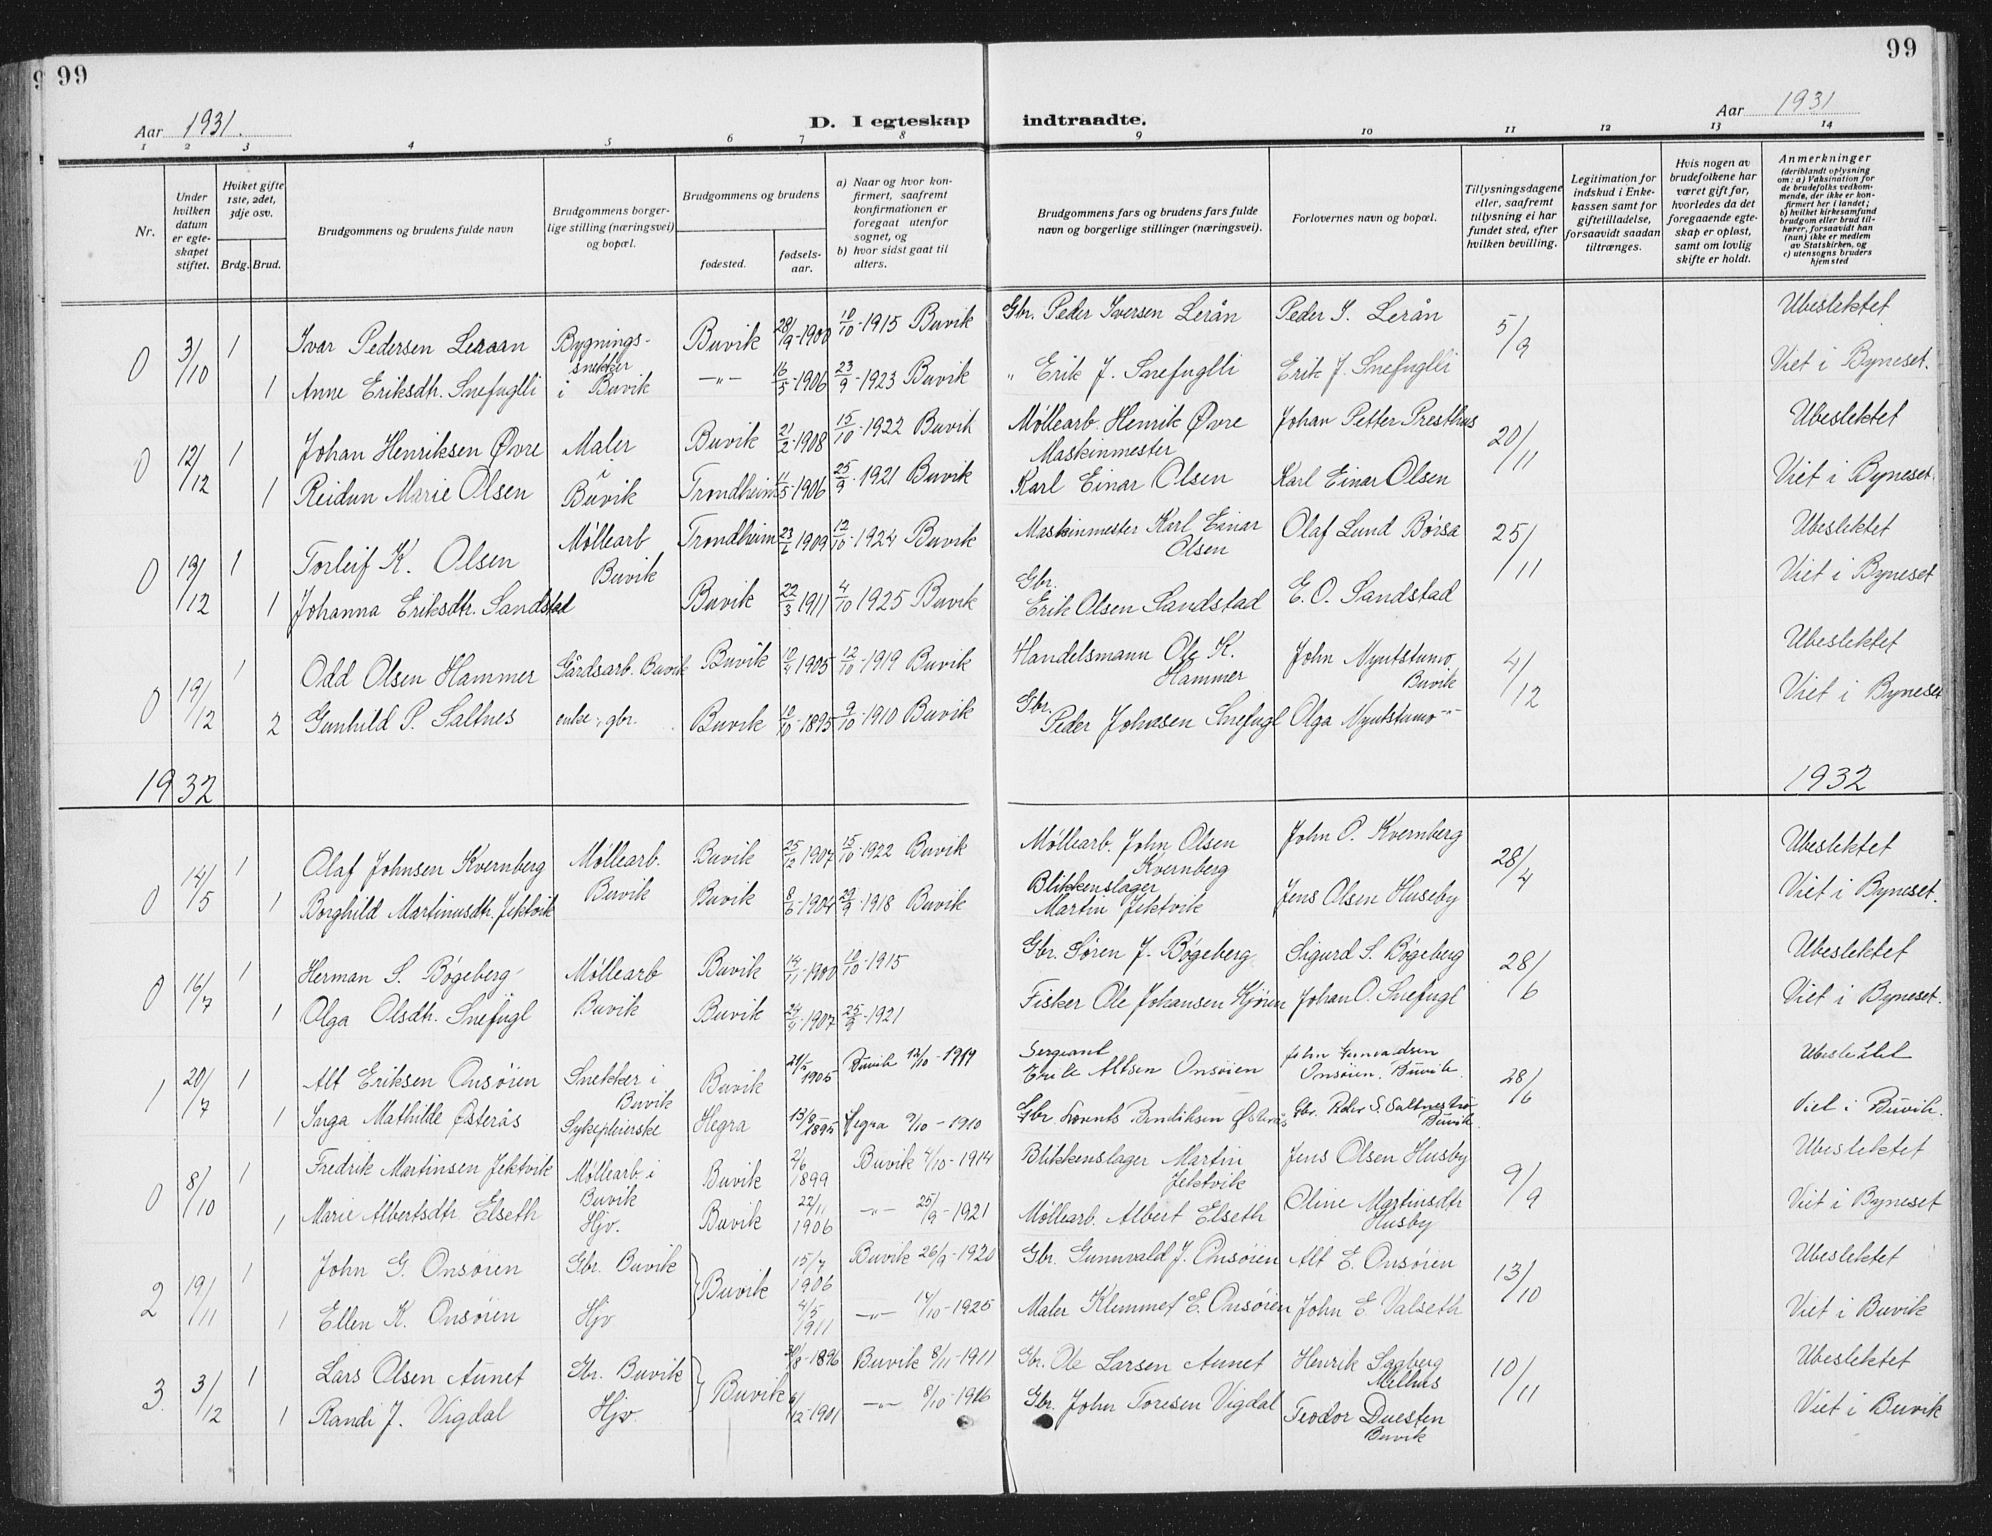 99
99
Aar 1931.
D. I egteskap
indtraadte.
Aar 1931
1 2 3 4 5 6 7 8 9 10 11 12 13 14
Nr.
Under hvilken datum er egteskapet stiftet.
Hviket gifte 1ste, 2det, 3dje osv.
Brdg. Brud.
Brudgommens og brudens fulde navn
Brudgommens borgerlige stilling (næringsvei) og bopæl.
Brudgommens og brudens
fødested.
fødselsaar.
a) Naar og hvor konfirmert, saafremt konfirmationen er foregaat utenfor sognet, og
b) hvor sidst gaat til alters.
Brudgommens fars og brudens fars fulde navn og borgerlige stillinger (næringsvei).
Forlovernes navn og bopæl.
Tillysningsdagene eller, saafremt tillysning ei har fundet sted, efter hvilken bevilling.
Legitimation for indskud i Enkekassen samt for giftetilladelse, forsaavidt saadan tiltrænges.
Hvis nogen av brudefolkene har været gift før, hvorledes da det foregaaende egteskap er opløst, samt om lovlig skifte er holdt.
Anmerkninger (deriblandt oplysning om: a) Vaksination for de brudefolks vedkommende, der ikke er konfirmert her i landet; b) hvilket kirkesamfund brudgom eller brud tilhører, forsaavidt han (hun) ikke er medlem av Statskirken, og c) utensogns bruders hjemsted
0 3/10 1 Ivar Pedersen Leraan Bygningssnekker Buvik 28/9-1900 10/10-1915 Buvik Gbr. Peder Iversen Lerån Peder I. Lerån 5/9 Ubeslektet
1 Anne Eriksdh. Snefuglli i Buvik -"- 16/5-1906 23/9-1923 Buvik " Erik J. Snefuglli Erik J. Snefuglli Viet i Byneset.
0 12/12 1 Johan Henriksen Øvre Maler Buvik 21/2-1908 15/10-1922 Buvik Møllearb. Henrik Øvre Johan Petter Presthus 20/11 Ubeslektet
1 Reidun Marie Olsen i Buvik Trondheim 11/5-1906 25/9-1921 Buvik Maskinmester Karl Einar Olsen Karl Einar Olsen Viet i Byneset.
0 19/12 1 Torleif K. Olsen Møllearb Buvik Trondheim 23/6 1909 12/10-1924 Buvik Maskinmester Karl Einar Olsen Olaf Lund Børsa 25/11 Ubeslektet
1 Johanna Eriksdtr. Sandstad Buvik 22/3 1911 4/10 1925 Buvik Gbr. Erik Olsen Sandstad E. O. Sandstad Viet i Byneset
0 19/12 1 Odd Olsen Hammer Gårdsarb. Buvik Buvik 10/4 1905 12/10-1919 Buvik Handelsmann Ole K. Hammer John Nyutstumo Buvik 4/12 Ubeslektet
2 Gunhild P. Saltnes enke, gbr. Buvik 10/10-1895 9/10-1910 Buvik Gbr. Peder Johnsen Snefugl Olga Nyutstumo -"- Viet i Byneset
1932
1932
0 14/5 1 Olaf Johnsen Kvernberg Møllearb. Buvik 25/12-1907 15/10-1922 Buvik Møllearb. John Olsen Kvernberg John O. Kvernberg 28/4 Ubeslektet
1 Borghild Martinusdtr. Jektvik Buvik Buvik 8/6-1904 29/9-1918 Buvik Blikkenslager Martin Jektvik Jens Olsen Huseby Viet i Byneset.
0 16/7 1 Herman S. Bøgeberg Møllearb Buvik 14/11-1900 10/10-1915 Gbr. Søren J. Bøgeberg Sigurd S. Bøgeberg 28/6 Ubeslektet
1 Olga Olsdtr. Snefugl Buvik Buvik 24/4-1907 25/9-1921 Fisker Ole Johansen Kjøren Johan O. Snefugl Viet i Byneset.
1 20/7 1 Alt Eriksen Onsøien Snekker i Buvik Buvik 21/5 1905 Buvik 12/10-1919 Sergeant Erik Altsen Onsøien John Gunvaldsen Onsøien. Buvik 28/6 Ubeslektet
1 Inga Mathilde Østerås Sykepleierske Hegra 13/8-1895 Hegra 2/10-1910 Gbr Lorents Bendiksen Østerås Gbr. Peder S. Saltnes Buvik Viet i Buvik.
0 8/10 1 Fredrik Martinsen Jektvik Møllearb. i Buvik Buvik 2/6 1899 Buvik 4/10-1914 Blikkenslager Martin Jektvik Jens Olsen Husby 9/9 Ubeslektet
1 Marie Albertsdtr Elseth Hjv. Buvik 22/11 1906 -"- 25/9-1921 Møllearb. Albert Elseth Oline Martinsdtr Husby Viet i Byneset
2 19/11 1 John G. Onsøien Gbr. Buvik Buvik 15/7 1906 Buvik 26/9-1920 Gbr. Gunnvald J. Onsøien Alt E. Onsøien 13/10 Ubeslektet
1 Ellen K. Onsøien Hjv 4/5 1911 -"- 14/10-1925 Maler Klemmet E. Onsøien John E. Valseth Viet i Buvik
3 3/12 1 Lars Olsen Aunet Gbr. Buvik Buvik 30/8-1896 Buvik 8/11-1911 Gbr. Ole Larsen Aunet Henrik Saaberg Melhus 10/11 Ubeslektet
1 Randi J. Vigdal Hjv. 6/12-1901 -"- 8/10-1916 Gbr. John Toresen Vigdal Teodor Duesten Buvik Viet i Buvik